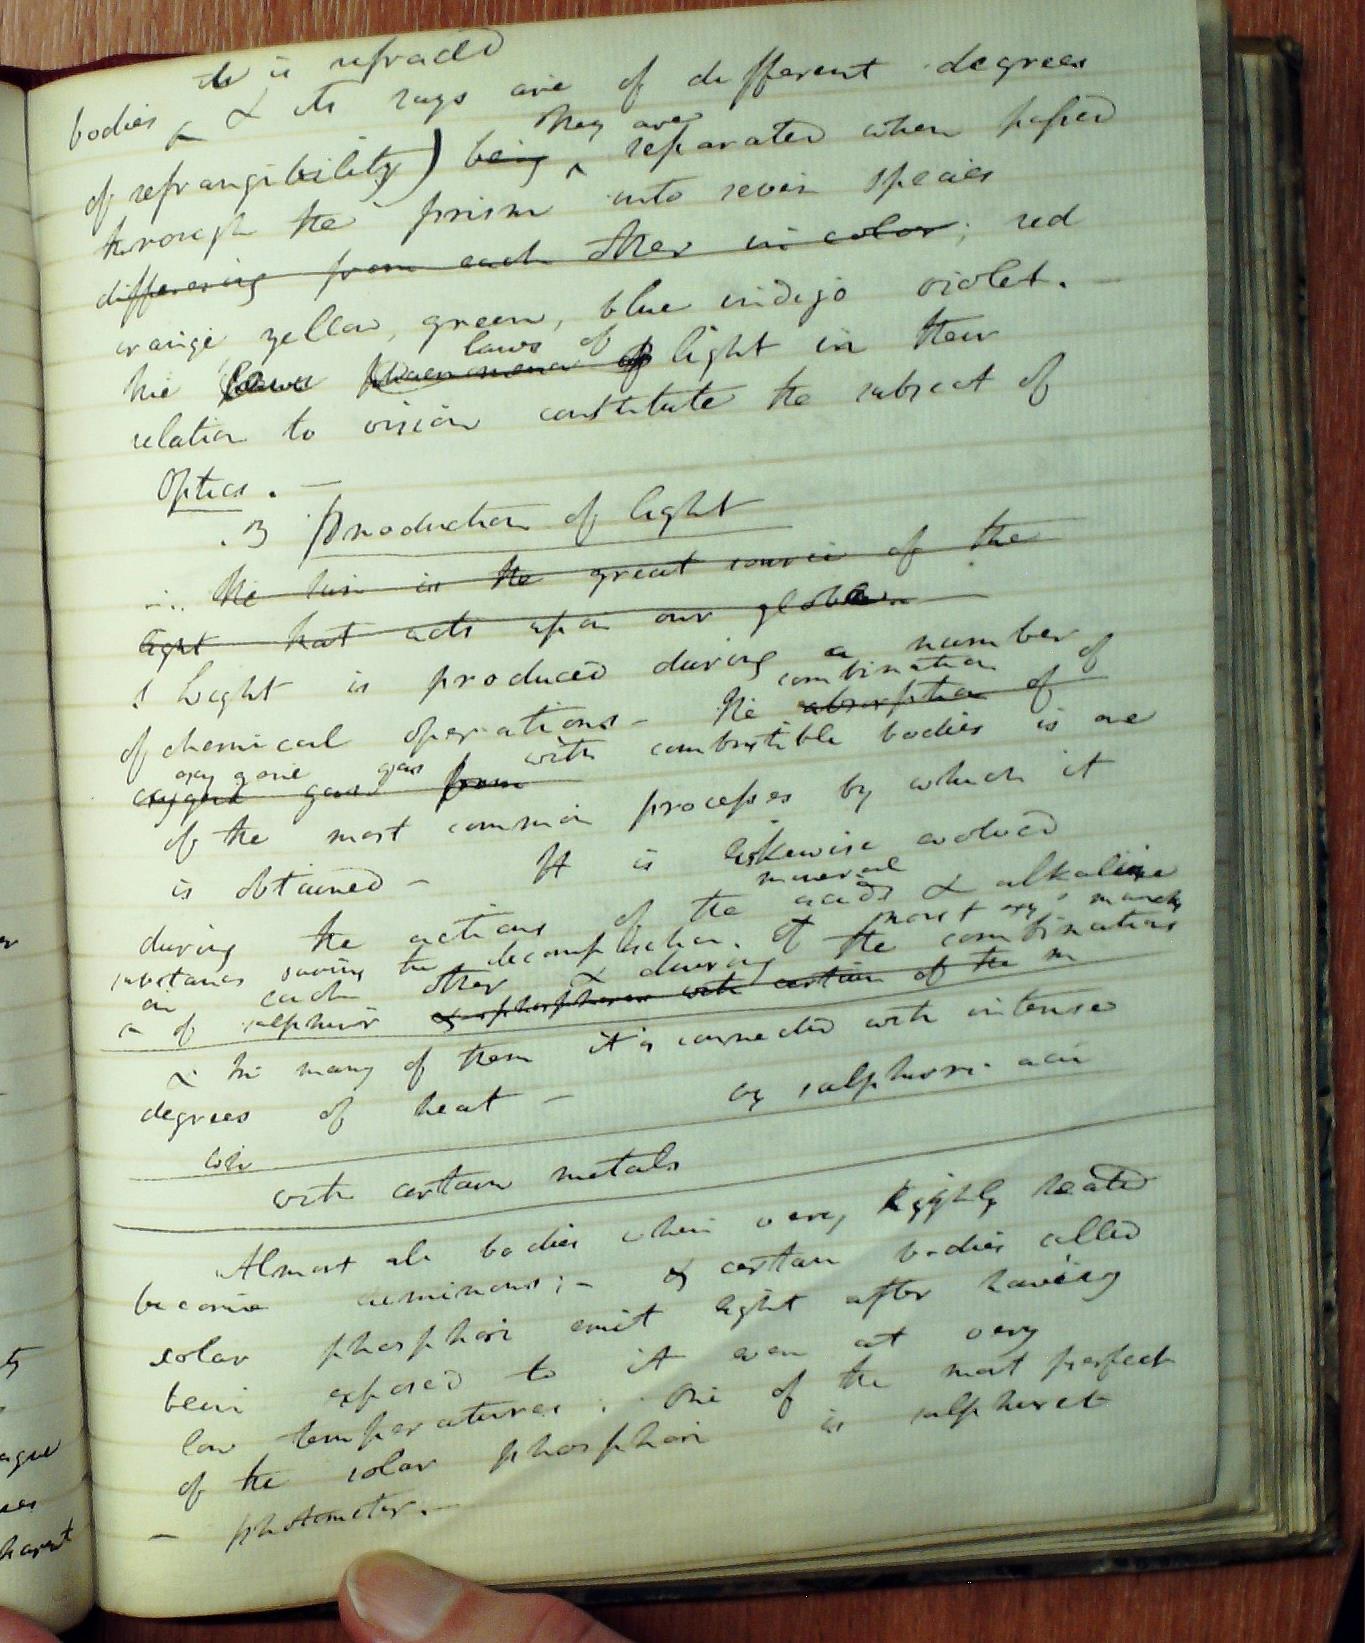 it is refracted
bodies & its rays are of different degrees
they are
of refrangibility) being separated when passed
through the prism into seven species
differing from each other in color; red
orange yellow, green, blue indigo violet.
laws of
The laws phaenomena of light in their
relation to vision constitute the subject of
Optics. —
.3 Production of light
The sun is the great source of the
light that acts upon our globe.
Light is produced during a number
combination of
of chemical operations - The absorption of
oxygene gas with combustible bodies is one
oxygene gas from
of the most common processes by which it
is obtained - It is likewise evolved
mineral
during the actions of the acids & alkaline
most
substances during the decomposition of the combinations
on each other & during
of sulphur & phosphorus with certain of the m
& in many of them it is connected with intense
degrees of heat —
by sulphuric acid
with certain metals
Almost all bodies when very highly heated
become luminous; - & certain bodies called
solar phosphori emit light after having
been exposed to it even at very
low temperatures. One of the most perfect
of the solar phosphori is sulphuret
— photometer. —